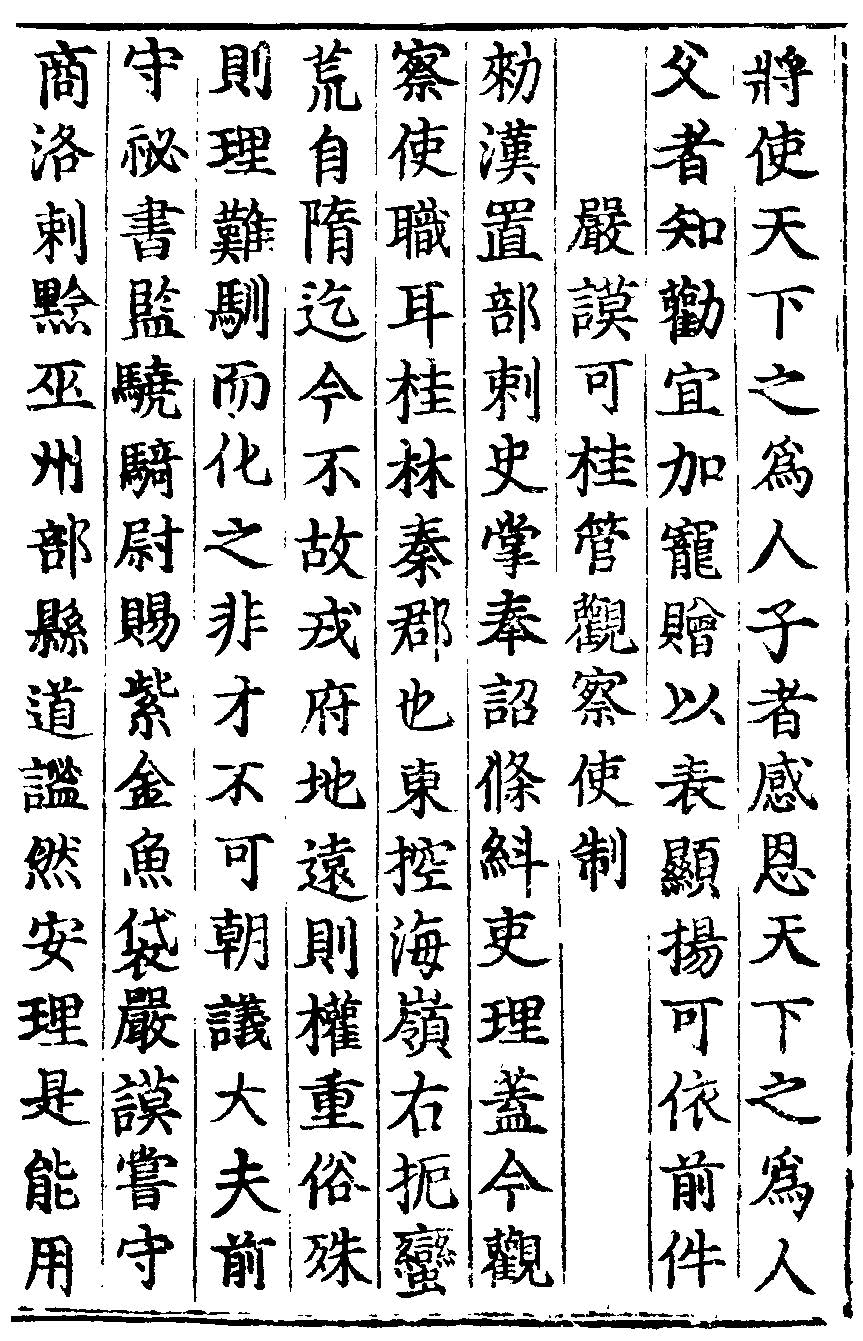 將使天下之爲人子者感恩天下之爲人
父者知勸宜加寵贈以表顯揚可依前件
嚴謨可桂管觀察使制
勑漢置部刺史掌奉詔條糾吏理蓋今觀
察使職耳桂林秦郡也東控海嶺右扼蠻
荒自隋迄今不故戎府地遠則權重俗殊
則理難馴而化之非才不可朝議大夫前
守祕書監驍騎尉賜紫金魚袋嚴謨嘗守
商洛刺黔巫州部縣道謐然安理是能用